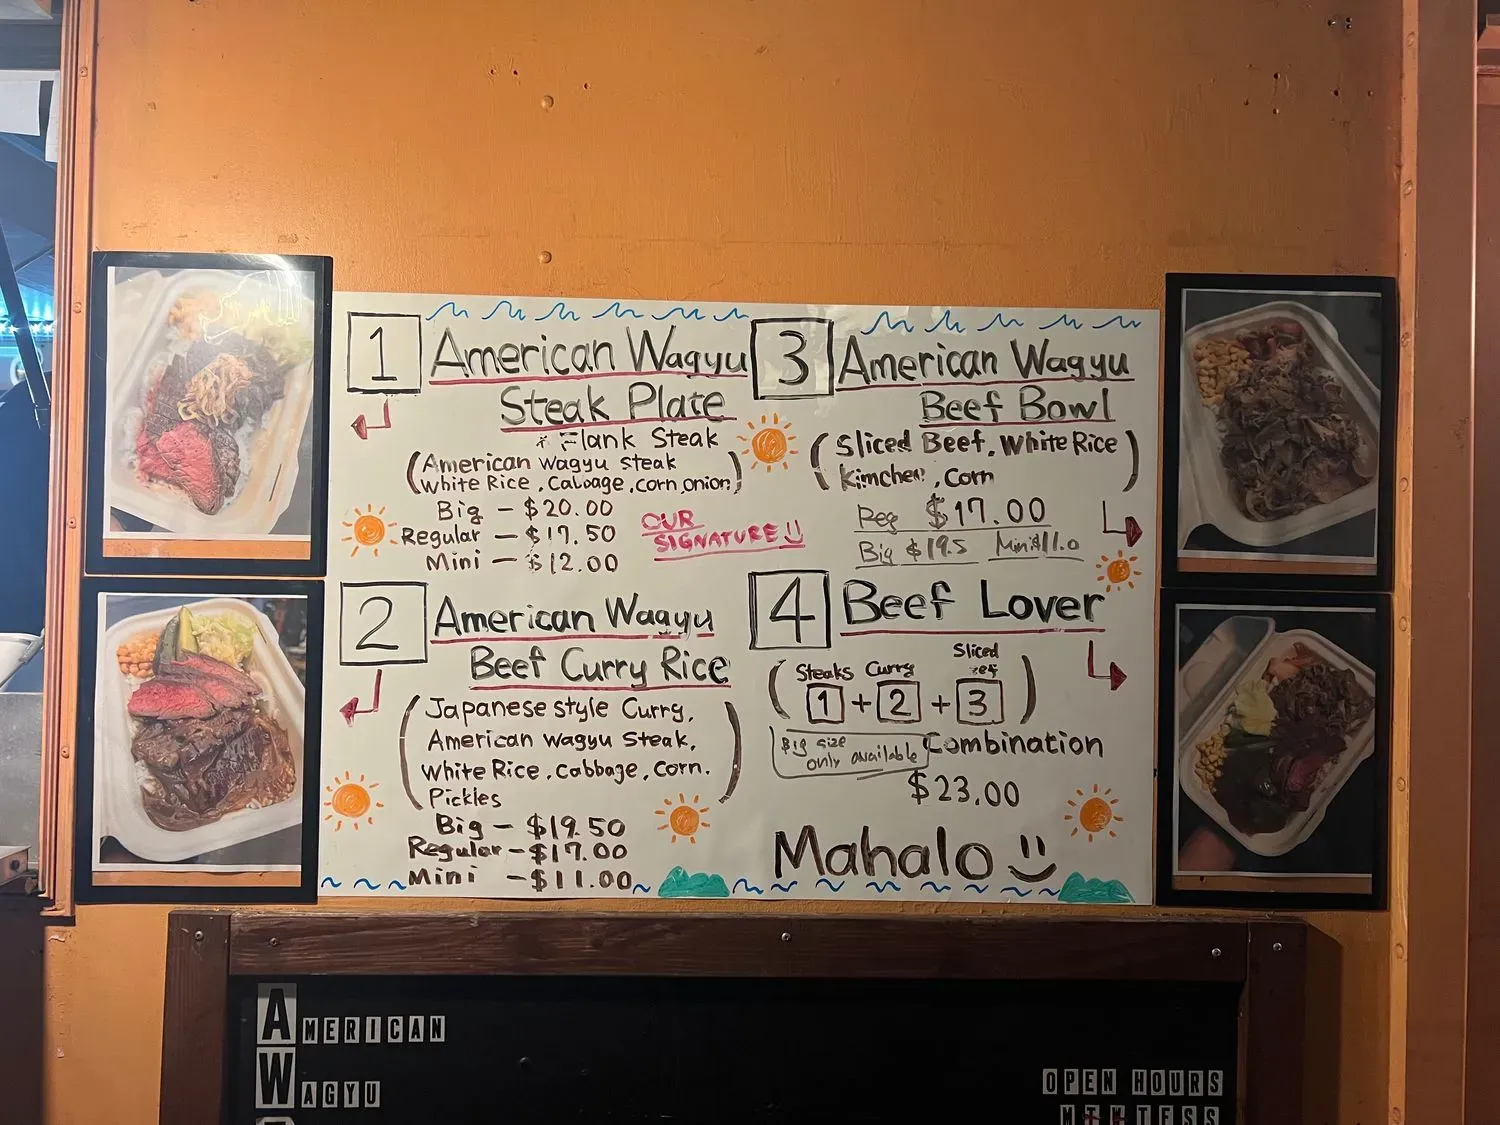 1 American Wagyu
Steak Plate
* Flank Steak
(American Wagyu steak
White Rice, Cabbage, corn, onion)
Big — $20.00
Regular — $17.50
Mini — $12.00
OUR
SIGNATURE
2 American Wagyu
Beef Curry Rice
(Japanese style Curry,
American Wagyu Steak,
White Rice, Cabbage, Corn.
Pickles)
Big — $19.50
Regular — $17.00
Mini — $11.00
3 American Wagyu
Beef Bowl
(Sliced Beef, White Rice
, Corn)
Reg $17.00
Big $19.5 Mini $11.0
4 Beef Lover
Steaks Curry Sliced
(1 + 2 + 3)
Big size
only available
Combination
$23.00
Mahalo
AMERICAN
WAGYU
OPEN HOURS